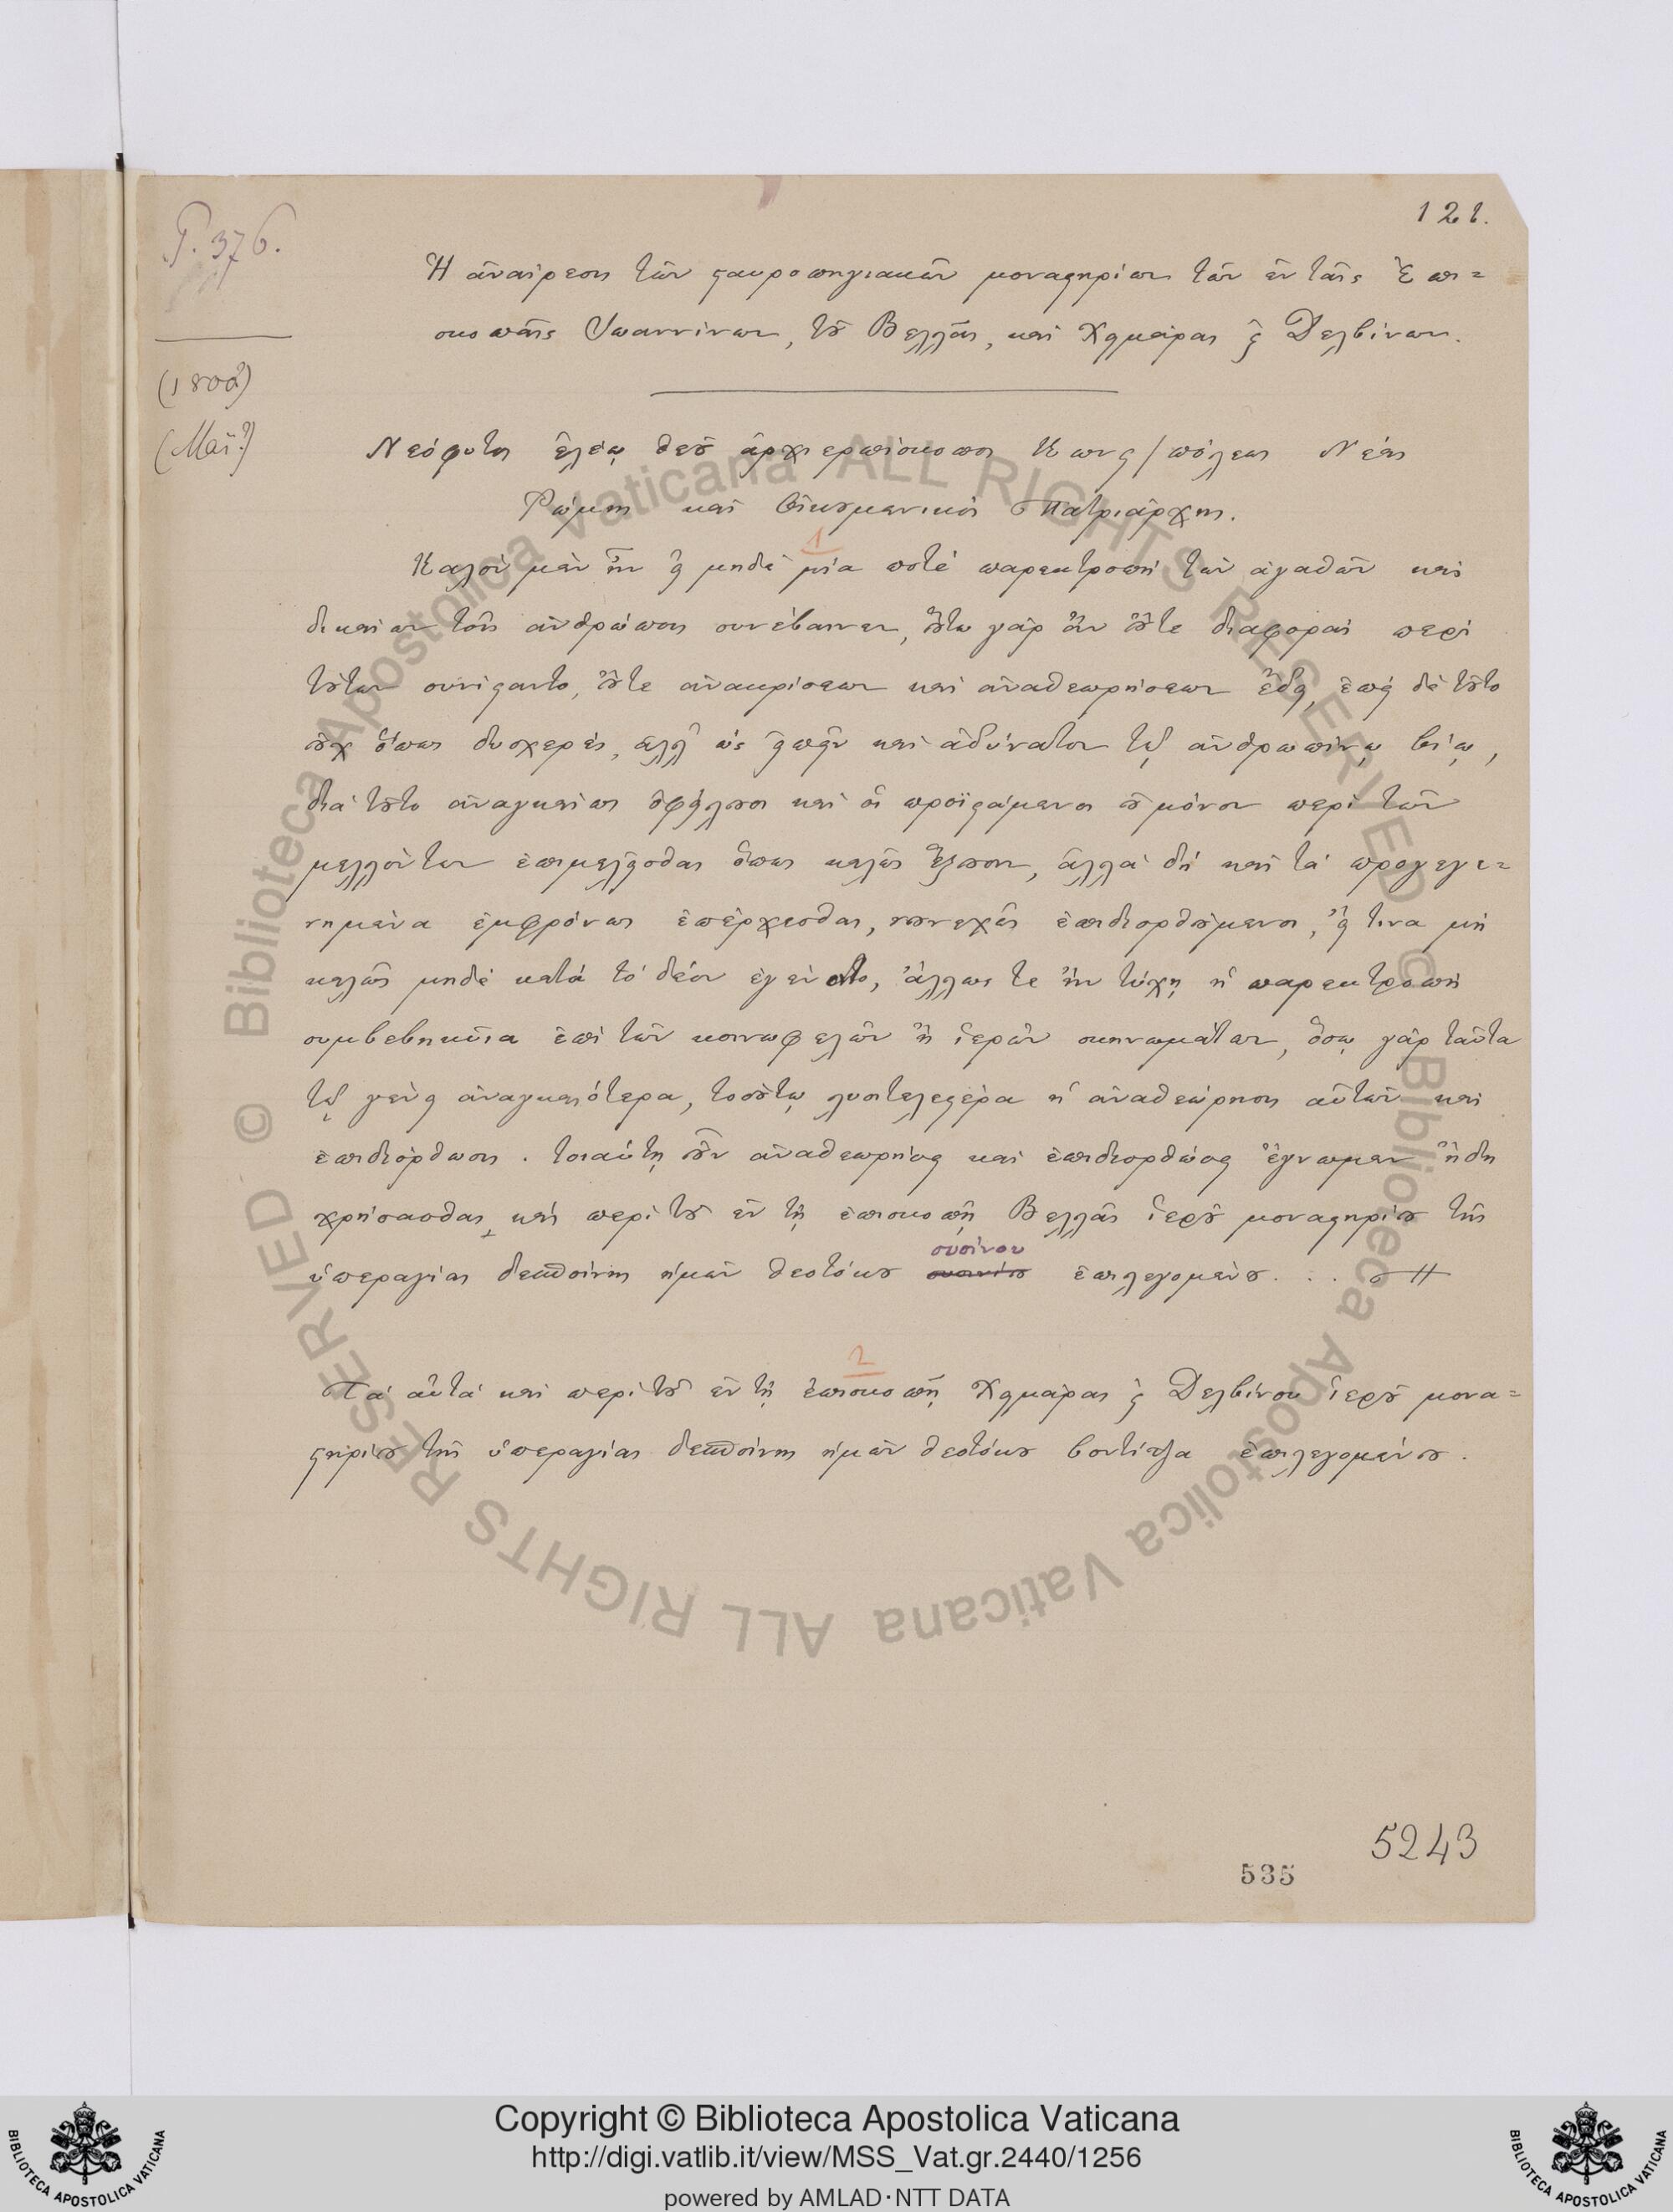 121.
P. 376.
Ἡ ἀναίρεσις τῶν σταυροπηγιακῶν μοναστηρίων τῶν ἐν ταῖς Ἐπι=
σκοπαῖς Ἰωαννίνων, τοῦ Βελλᾶς, καὶ Χειμάρας καὶ Δελβίνων.
(1800?)
(Μαϊ?)
Νεόφυτος ἐλέῳ θεοῦ ἀρχιεπίσκοπος Κωνσ/πόλεως Νέας
Ῥώμης καὶ Οἰκουμενικὸς Πατριάρχης.
1
Καλὸν μὲν ἦν εἰ μηδὲ μία ποτὲ παρεκτροπὴ τῶν ἀγαθῶν καὶ
δικαίων τοῖς ἀνθρώποις συνέβαινεν, οὕτω γὰρ ἂν οὔτε διαφοραὶ περὶ
τούτων συνίσταντο, οὔτε ἀνακρίσεων καὶ ἀναθεωρήσεων ἔδει, ἐπεὶ δὲ τοῦτο
οὐχ ὅπως δυσχερὲς, ἀλλ' ὡς εἰπεῖν καὶ ἀδύνατον τῷ ἀνθρωπίνῳ βίῳ,
διὰ τοῦτο ἀναγκαίως ὀφείλουσι καὶ οἱ προϊστάμενοι οὐ μόνον περὶ τῶν
μελλόντων ἐπιμελεῖσθαι ὅπως καλῶς ἕξουσιν, ἀλλὰ δὴ καὶ τὰ προγεγε=
νημένα ἐμφρόνως ἐπέρχεσθαι, συνεχῶς ἐπιδιορθούμενοι, εἴ τινα μὴ
καλῶς μηδὲ κατὰ τὸ δέον ἐγένετο, ἄλλως τε ἢν τύχῃ ἡ παρεκτροπὴ
συμβεβηκυῖα ἐπὶ τῶν κοινωφελῶν ἢ ἱερῶν σκηνωμάτων, ὅσῳ γὰρ ταῦτα
τῷ γένει ἀναγκαιότερα, τοσούτῳ λυσιτελεστέρα ἡ ἀναθεώρησις αὐτῶν καὶ
ἐπιδιόρθωσις. τοιαύτῃ οὖν ἀναθεωρήσει καὶ ἐπιδιορθώσει ἔγνωμεν ἤδη
χρήσασθαι καὶ περὶ τοῦ ἐν τῇ ἐπισκοπῇ Βελλᾶς ἱεροῦ μοναστηρίου τῆς
ὑπεραγίας δεσποίνης ἡμῶν θεοτόκου συσίνου ἐπιλεγομένου . . .
2
Τὰ αὐτὰ καὶ περὶ τοῦ ἐν τῇ ἐπισκοπῇ Χειμάρας καὶ Δελβίνου ἱεροῦ μονα=
στηρίου τῆς ὑπεραγίας δεσποίνης ἡμῶν θεοτόκου βοντίτζα ἐπιλεγομένου.
5243
535
© Biblioteca Apostolica Vaticana ALL RIGHTS RESERVED © Biblioteca Apostolica Vaticana ALL RIGHTS RESERVED
Copyright © Biblioteca Apostolica Vaticana
http://digi.vatlib.it/view/MSS_Vat.gr.2440/1256
powered by AMLAD·NTT DATA
BIBLIOTECA APOSTOLICA VATICANA
BIBLIOTECA APOSTOLICA VATICANA